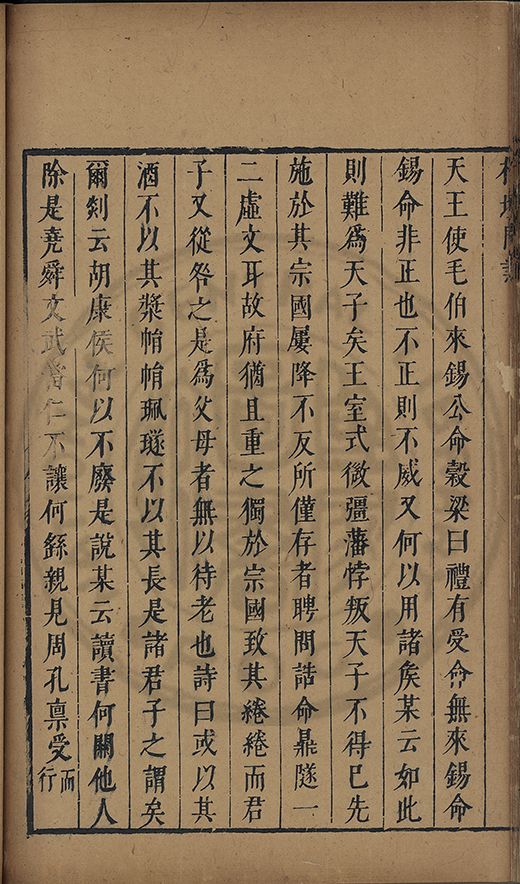 天王使毛伯來錫公命穀梁曰禮有受命無來錫命
錫命非正也不正則不威又何以用諸矦某云如此
則難爲天子矣王室式微彊藩悖叛天子不得已先
施於其宗國屢降不反所僅存者聘問誥命鼎隧一
二虛文耳故府猶且重之獨於宗國致其綣綣而君
子又從咎之是爲父母者無以待老也詩曰或以其
酒不以其漿鞙鞙珮璲不以其長是諸君子之謂矣
爾剡云胡康侯何以不廢是說某云讀書何關他人
除是堯舜文武當仁不讓何繇親見周孔禀受而行